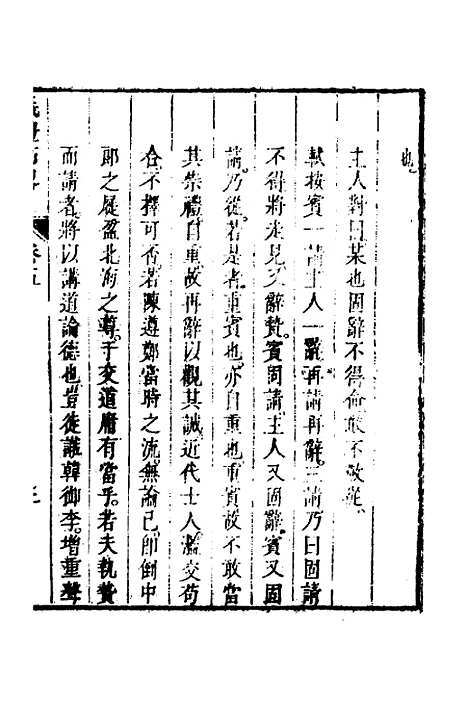 也
主人對曰某也固辭不得命敢不敬從
欽按賓一請主人一辭再請再辭三請乃曰固請
不得將走見又辭贄賓固請主人又固辭賓又固
請乃從若是者重賓也亦自重也重賓故不敢當
其崇禮自重故再辭以觀其誠近代士人濫交苟
合不擇可否若陳遵鄭當時之流無論已即倒中
郎之屣盈北海之尊于交道庸有當乎若夫執贄
而請者將以講道論德也豈徒識韓御李增重聲
卷五